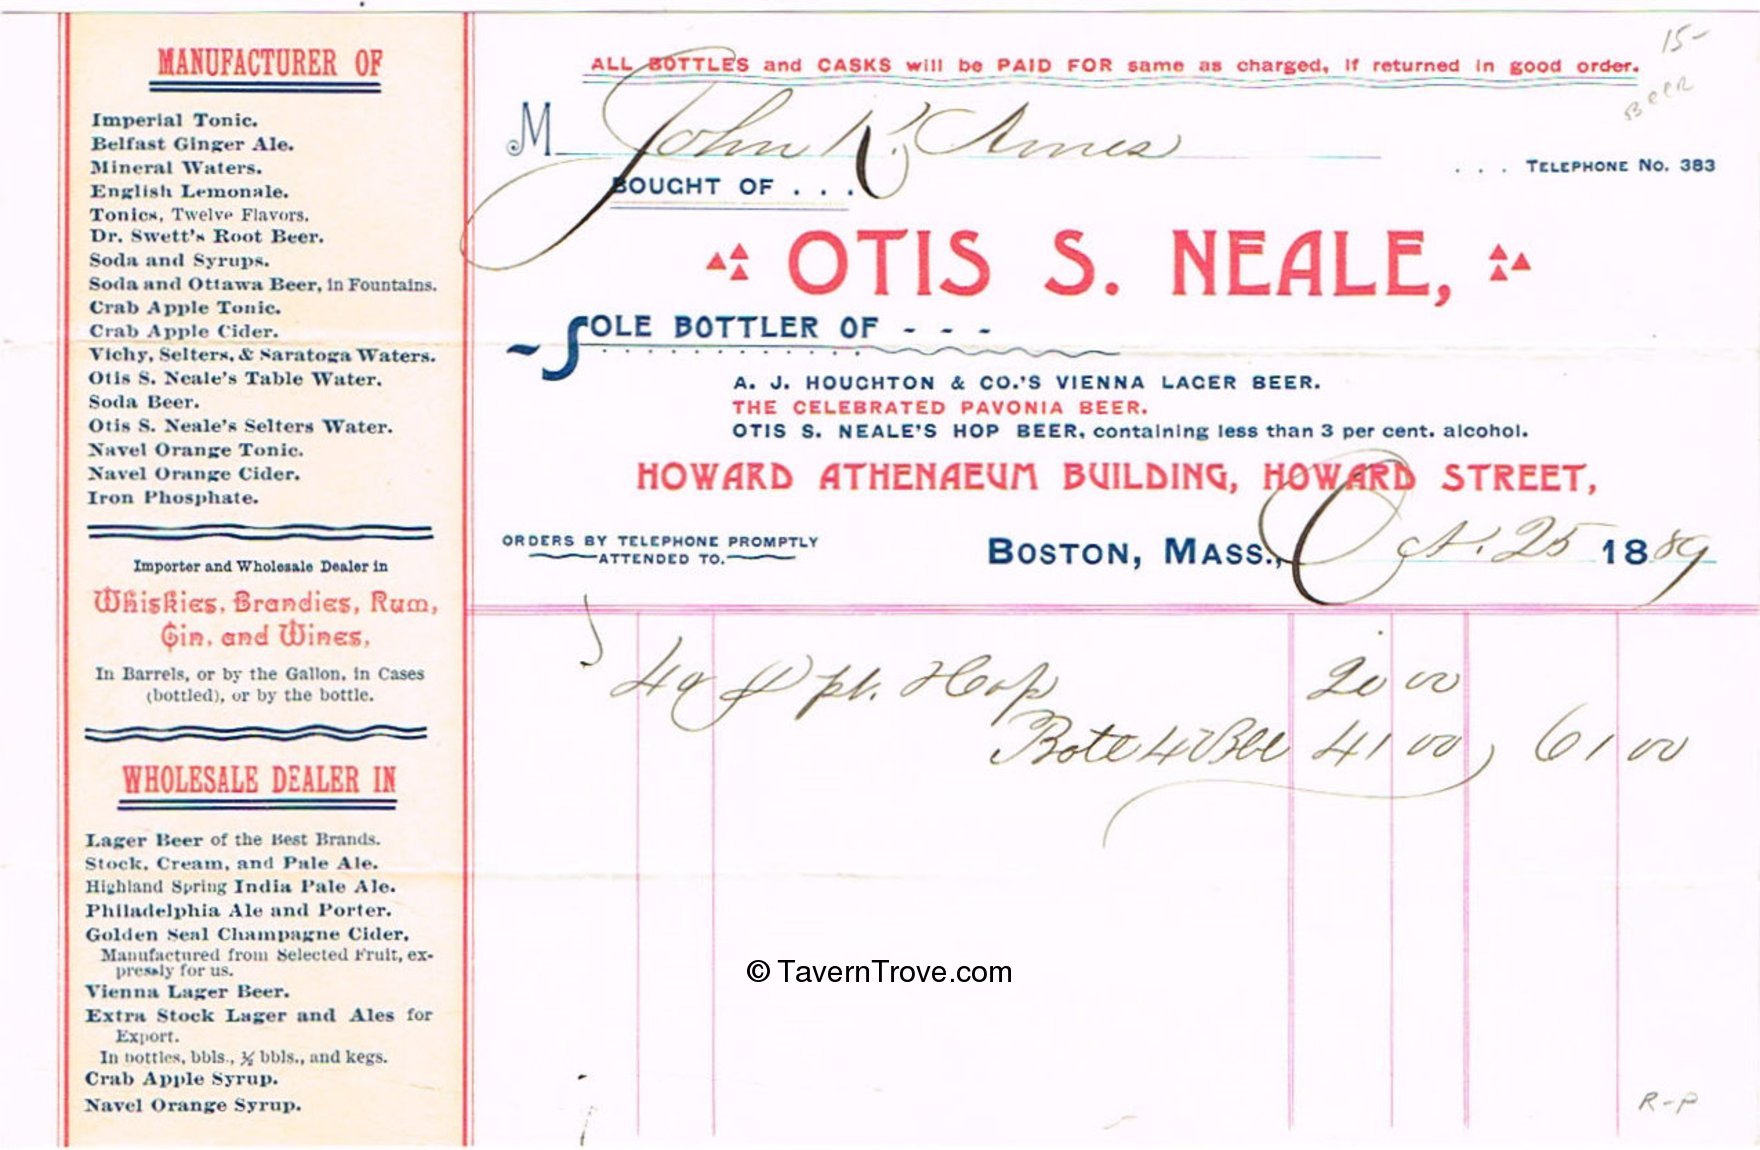 MANUFACTURER OF
Imperial Tonic.
Belfast Ginger Ale.
Mineral Waters.
English Lemonale.
Tonics, Twelve Flavors.
Dr. Swett's Root Beer.
Soda and Syrups.
Soda and Ottawa Beer, in Fountains.
Crab Apple Tonic.
Crab Apple Cider.
Vichy, Selters, & Saratoga Waters.
Otis S. Neale's Table Water.
Soda Beer.
Otis S. Neale's Selters Water.
Navel Orange Tonic.
Navel Orange Cider.
Iron Phosphate.
Importer and Wholesale Dealer in
Whiskies, Brandies, Rum,
Gin, and Wines,
In Barrels, or by the Gallon, in Cases
(bottled), or by the bottle.
WHOLESALE DEALER IN
Lager Beer of the Best Brands.
Stock, Cream, and Pale Ale.
Highland Spring India Pale Ale.
Philadelphia Ale and Porter.
Golden Seal Champagne Cider,
Manufactured from Selected Fruit, ex-
pressly for us.
Vienna Lager Beer.
Extra Stock Lager and Ales for
Export.
In bottles, bbls., ½ bbls., and kegs.
Crab Apple Syrup.
Navel Orange Syrup.
15-
Beer
ALL BOTTLES and CASKS will be PAID FOR same as charged, if returned in good order.
M John K. Ames
BOUGHT OF . . .
. . . TELEPHONE No. 383
OTIS S. NEALE,
SOLE BOTTLER OF - - -
A. J. HOUGHTON & CO.'S VIENNA LAGER BEER.
THE CELEBRATED PAVONIA BEER.
OTIS S. NEALE'S HOP BEER, containing less than 3 per cent. alcohol.
HOWARD ATHENAEUM BUILDING, HOWARD STREET,
ORDERS BY TELEPHONE PROMPTLY
ATTENDED TO.
BOSTON, MASS., Oct. 25 1889
pt. Hop 20 00
4 Bbl 41 00 61 00
© TavernTrove.com
R-P